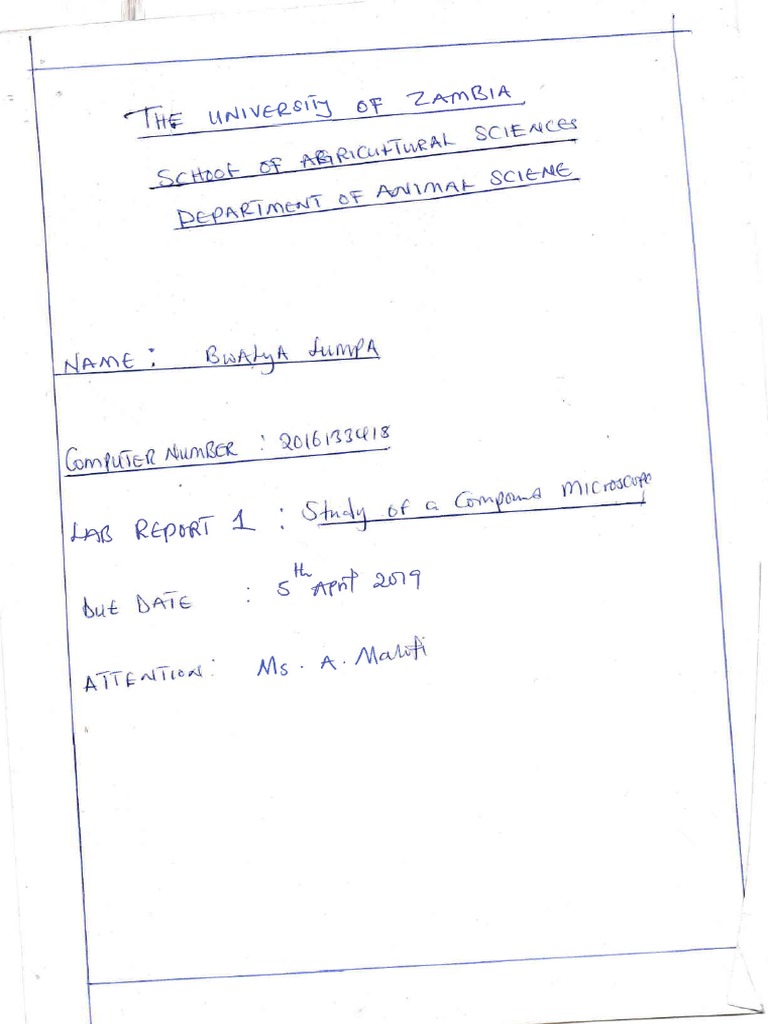 THE UNIVERSITY OF ZAMBIA
SCHOOL OF AGRICULTURAL SCIENCES
DEPARTMENT OF ANIMAL SCIENE
NAME: BWALYA LUMPA
COMPUTER NUMBER : 2016133418
LAB REPORT 1 : Study of a Compound Microscope
DUE DATE : 5th April 2019
ATTENTION: Ms. A.